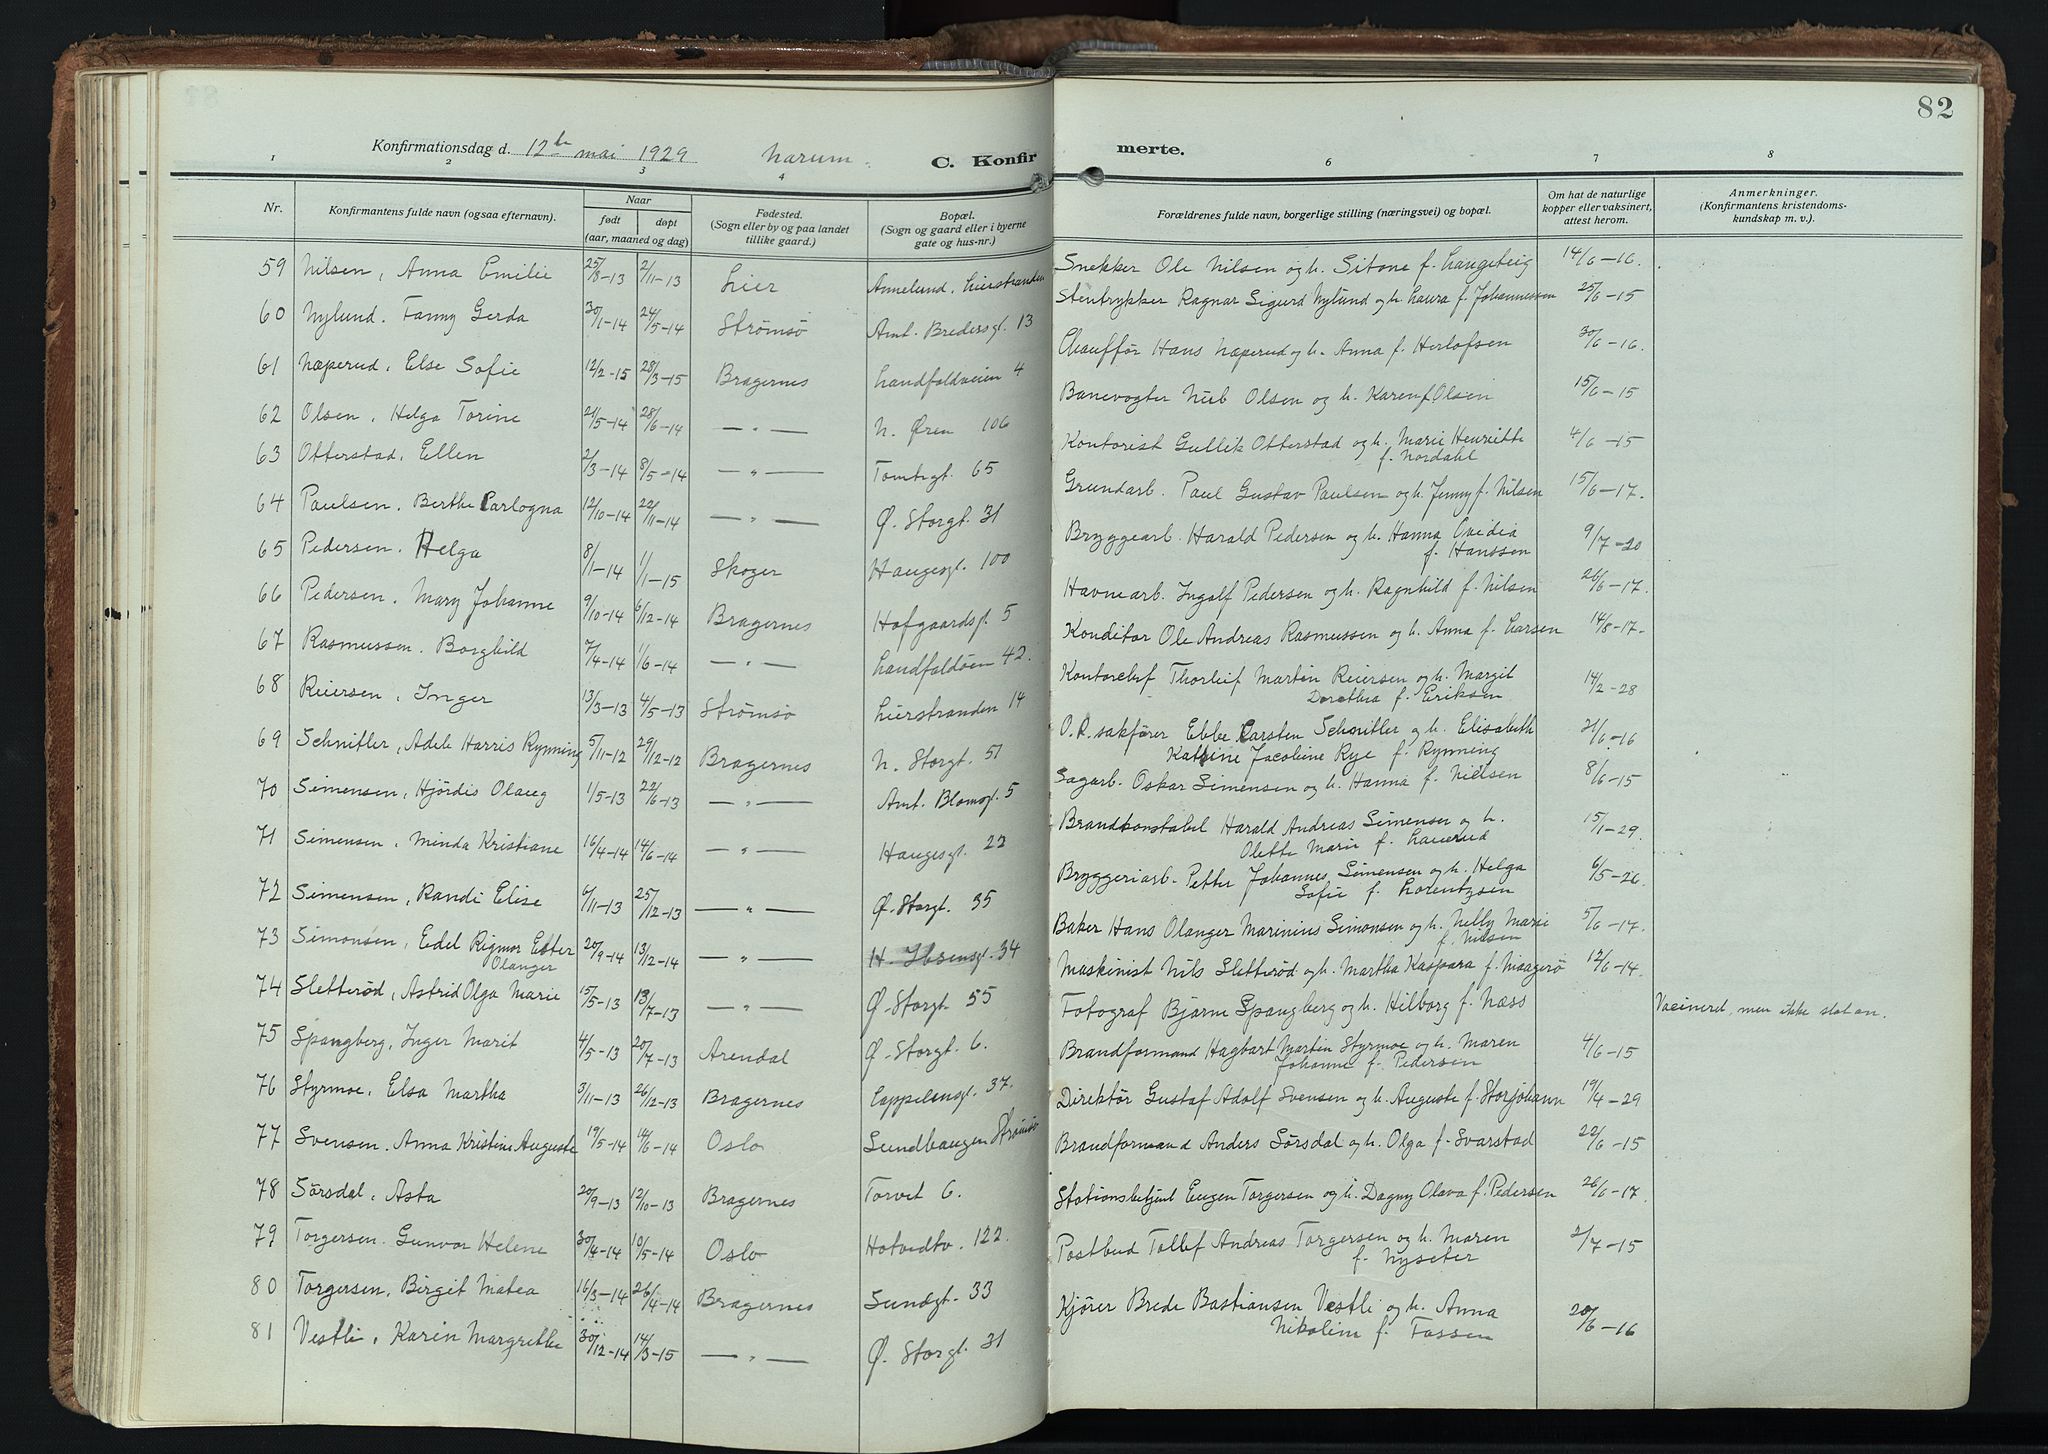 82
Konfirmationsdag d. 12te mai 1929 Narum C. Konfirmerte.
1 2 3 4 6 7 8
Nr. Konfirmantens fulde navn (ogsaa efternavn). Naar født døpt (aar, maaned og dag) Fødested. (Sogn eller by og paa landet tillike gaard.) Bopæl. (Sogn og gaard eller i byerne gate og hus-nr.) Forældrenes fulde navn, borgerlige stilling (næringsvei) og bopæl. Om hat de naturlige kopper eller vaksinert, attest herom. Anmerkninger. (Konfirmantens kristendomskundskap m. v.).
59 Nilsen, Anna Emilie 25/8-13 2/11-13 Lier Annelund, Lierstranden Snekker Ole Nilsen og h. Sitone f. Langeteig 14/6-16.
60 Nylund. Fanny Gerda 30/1-14 24/5-14 Strømsø Amt. Bredersgt. 13 Stentrykker Ragnar Sigurd Nylund og h. Laura f. Johannessen 25/6-15
61 Næperud, Else Sofie 12/2-15 28/3-15 Bragernes Landfaldveien 4 Chauffør Hans Næperud og h. Anna f. Herlofsen 30/6-16.
62 Olsen, Helga Torine 21/5-14 28/6-14 — " — N. Øren 106 Banevogter Nub Olsen og h. Karen f. Olsen 15/6-15
63 Otterstad, Ellen 2/3-14 8/5-14 — " — Tomtegt. 65 Kontorist Gullik Otterstad og h. Marie Henriette
f. Nordahl 4/6-15
64 Paulsen, Berthe Carlogna 12/10-14 22/11-14 — " — Ø. Storgt. 31 Grundarb. Paul Gustav Paulsen og h. Jenny f. Nilsen 15/6-17.
65 Pedersen. Helga 8/1-14 1/1-15 Skoger Haugesgt. 100 Bryggearb. Harald Pedersen og h. Hanna Ovidia
f. Hanssen 9/7-20
66 Pedersen. Mary Johanne 9/10-14 6/12-14 Bragernes Hofgaardsgt. 5 Havnearb. Ingolf Pedersen og h. Ragnhild f. Nilsen 26/6-17.
67 Rasmussen. Borghild 7/4-14 1/6-14 — " — Landfaldøen 42. Konditor Ole Andreas Rasmussen og h. Anna f. Larsen 14/8-17.
68 Reiersen, Inger 13/3-13 4/5-13 Strømsø Lierstranden 14 Kontorchef Thorleif Martin Reiersen og h. Margit
Dorothea f. Eriksen 14/2-28
69 Schnitler, Adele Harris Rynning 5/11-12 29/12-12 Bragernes N. Storgt. 51 O.R. sakfører Ebbe Carsten Schnitler og h. Elisabeth
Katrine Jacobine Rye f. Rynning 21/6-16
70 Simensen, Hjördis Olaug 1/5-13 22/6-13 — " — Amt. Blomsgt. 5 Sagarb. Oskar Simensen og h. Hanna f. Nielsen 8/6-15
71 Simensen, Minda Kristiane 16/4-14 14/6-14 — " — Haugesgt. 22 Brandkonstabel Harald Andreas Simensen og h.
Olette Marie f. Lauerud 15/1-29.
72 Simensen, Randi Elise 6/11-13 25/12-13 — " — Ø. Storgt. 35 Bryggeriarb. Petter Johannes Simensen og h. Helga
Sofie f. Lorentzsen 6/5-26.
73 Simonsen, Edel Rigmor Ester
Olanger 20/9-14 13/12-14 — " — H. Ibsensgt. 34 Baker Hans Olanger Marinius Simonsen og h. Nelly Marie
f. Nilsen 5/6-14.
74 Sletterød, Astrid Olga Marie 15/5-13 13/7-13 — " — Ø. Storgt. 55 Maskinist Nils Sletterød og h. Martha Kaspara f. Maagerø 12/6-14.
75 Spangberg, Inger Marit 4/5-13 20/7-13 Arendal Ø. Storgt. 6. Fotograf Bjarne Spangberg og h. Hilborg f. Næss Vacinerd, men ikke slot an.
76 Styrmoe, Elsa Martha 3/11-13 26/12-13 Bragernes Cappelensgt. 37. Brandformand Hagbart Martin Styrmoe og h. Maren
Johanne f. Pedersen 4/6-15
77 Svensen. Anna Kristine Auguste 19/5-14 14/6-14 Oslo Sundhaugen Strømsø Direktør Gustaf Adolf Svensen og h. Auguste f. Storjohann 19/4-29
78 Sörsdal, Asta 20/9-13 12/10-13 Bragernes Torvet 6. Brandformand Anders Sörsdal og h. Olga f. Svarstad 22/6-15
79 Torgersen. Gunvor Helene 30/4-14 10/5-14 Oslo Hotvedtv. 122. Stationsbetjent Eugen Torgersen og h. Dagny Olava f. Pedersen 26/6-17.
80 Torgersen, Birgit Matea 16/3-14 26/4-14 Bragernes Sundgt. 33 Postbud Tollef Andreas Torgersen og h. Maren
f. Nyseter 2/7-15
81 Vestli, Karin Margrethe 30/12-14 14/3-15 — " — Ø. Storgt. 31 Kjører Brede Bastiansen Vestli og h. Anna
Nikoline f. Fossen 20/6-16